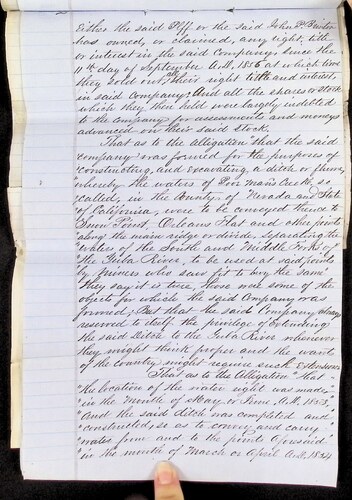 Either the said Plff. or the said John P. Buxton
has owned, or claimed, any right, title
or interest in the said Company, since the
11th day of September A.D. 1856 at which time
they sold out all their right title and interest,
in said Company; And all the shares or stock
which they then held were largely indebted
to the company for assessments and moneys
advanced on their said stock.
That as to the allegation that the said
company was formed for the purposes of
constructing, and excavating, a ditch or flume,
whereby the waters of Poor man's Creek, so
called, in the County of Nevada and State
of California, were to be conveyed thence to
Snow Point, Orleans Flat and other points
along the main ridge or divide, separating the
waters of the South and Middle Forks of
the Yuba River, to be used at said points
by miners who saw fit to buy the same
They say it is true, those were some of the
objects for which the said Company was
formed; But that the said Company always
reserved to itself the privilege of extending
the said Ditch to the Yuba River whenever
they might think proper and the wants
of the country might require such extension.
That as to the Allegation "that
"the location of the water right was made
"in the month of May or June A.D. 1853,
"And the said ditch was completed and
"constructed, so as to convey and carry
"water from and to the points aforesaid
"in the month of March or April A.D. 1854